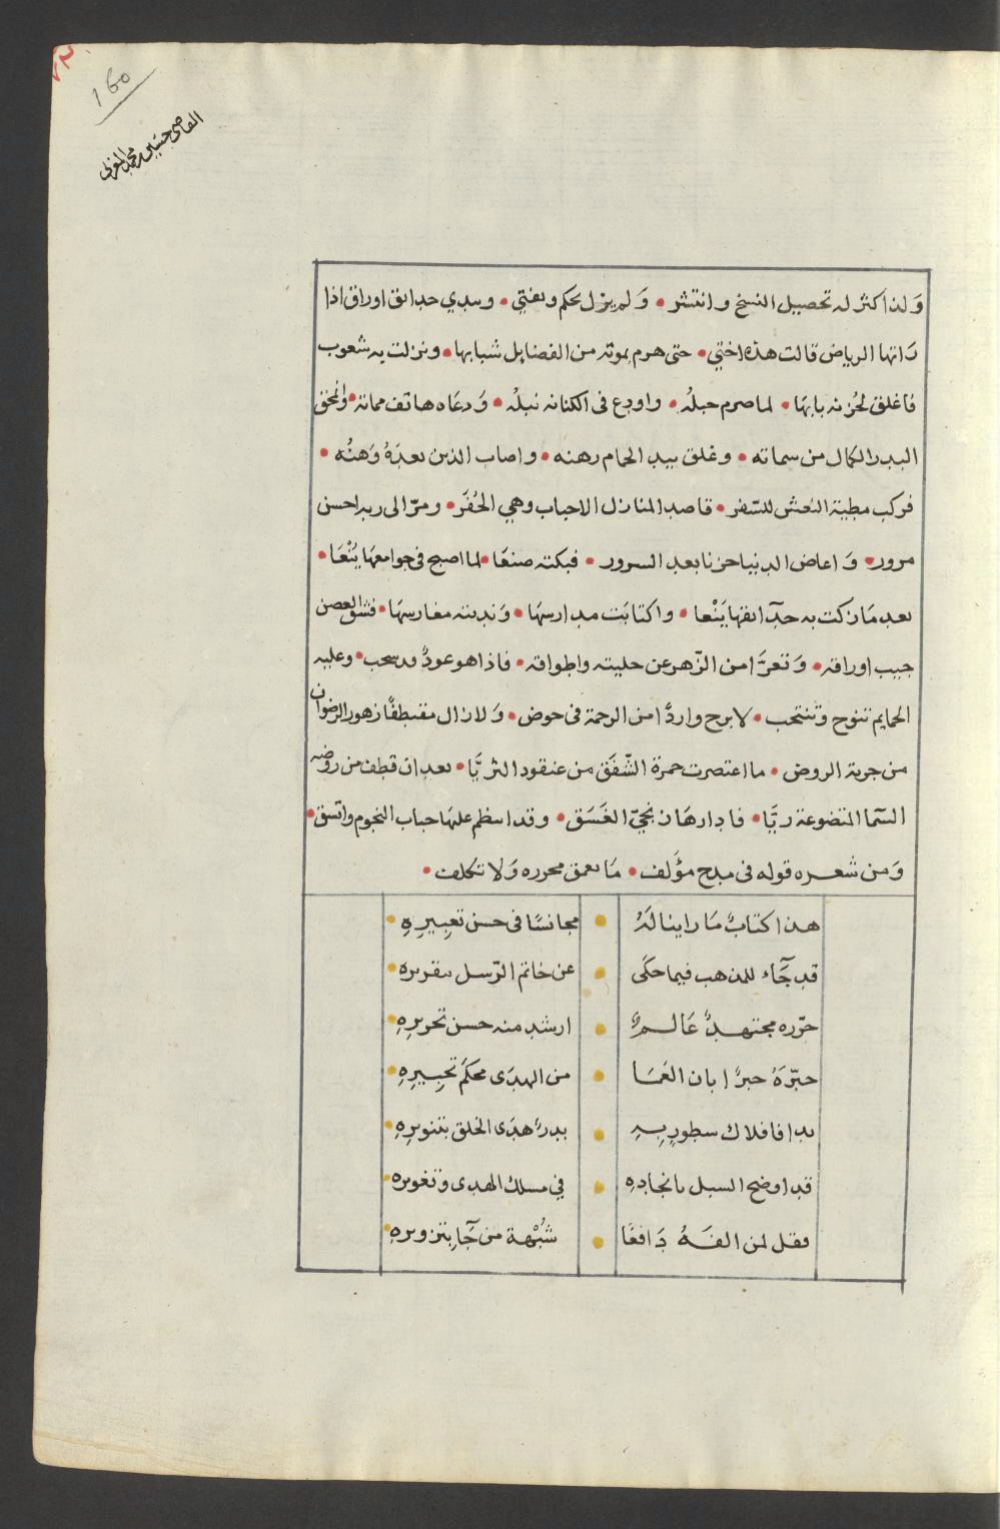 160
القاضي حسين بن محمد المغربي
وَلذا كثر له تحصيل النسخ وانتشر • وَلم يزل يحكم ويفتي • ويبدي حدائق اوراق اذا
رَاتها الرياض قالت هذه اختي • حتى هرم بموته من الفضايل شبابها • ونزلت به شعوب
فاغلق لحزنه بابهَا • لما صرم حبلُه • واودع في الكنانه نبلُه • وَدعَاه هاتف مماته • وانمحق
البدر الكمال من سماته • وغلق بيد الحمام رهنه • واصاب الدين بعدَهُ وَهنُه •
فركب مطية النعش للسّفر • قاصد المنازل الاحباب وهي الحُفَر • ومرّ الى ربه احسن
مرور • وَاعاض الدنيا حزنا بعد السرور • فبكته صنعَا • لما اصبح في جوامعهَا يُنْعَا •
بعد مَا زكت به حدآئقها يَنْعا • واكتابَت مدارسهَا • وَندبته مغارسهَا • فشق الغصن
جيب اوراقه • وَتعرَّا من الزّهر عن حليته واطواقه • فاذا هو عودٌ قد سحب • وعليه
الحمايم تنوح وَتنتحب • لا برح واردًا من الرحمة في حوض • وَلا زال مقتطفًا زهور الرضوان
من جربة الروض • ما اعتصرت حمرة الشّفَق من عنقود الثريَّا • بعد ان قطف من روضه
السّما المتضوعة ريَّا • فادارهَا زنجيّ الغَسَق • وقد انتظم عليهَا حباب النجوم واتسق •
وَمن شعره قوله في مدح مؤَلف • مَا تعمق محرره وَلا تكلف •
هذا كتابٌ مَا راينا لَهُ • مجانسًا في حسن تعبِيرِهِ •
قد جَآء للمذهب فيما حكَى • عن خاتم الرّسل بتقريره •
حرّره مجتهدٌ عَالمٌ • ارشد منه حسن تحريرِهِ •
حبّرَهُ حبرٌ ابان العَمَا • من الهدَى محكَم تحبِيرِهِ •
بدا فافلاك سطورٍ بهِ • بدرٌ هدَى الخلق بتنويرِهِ •
قد اوضح السبل بانجادهِ • في مسلك الهدى وتغويره •
فقل لمن الفَهُ دَافعًا • شُبْهة من جَآ بتزويرهِ •